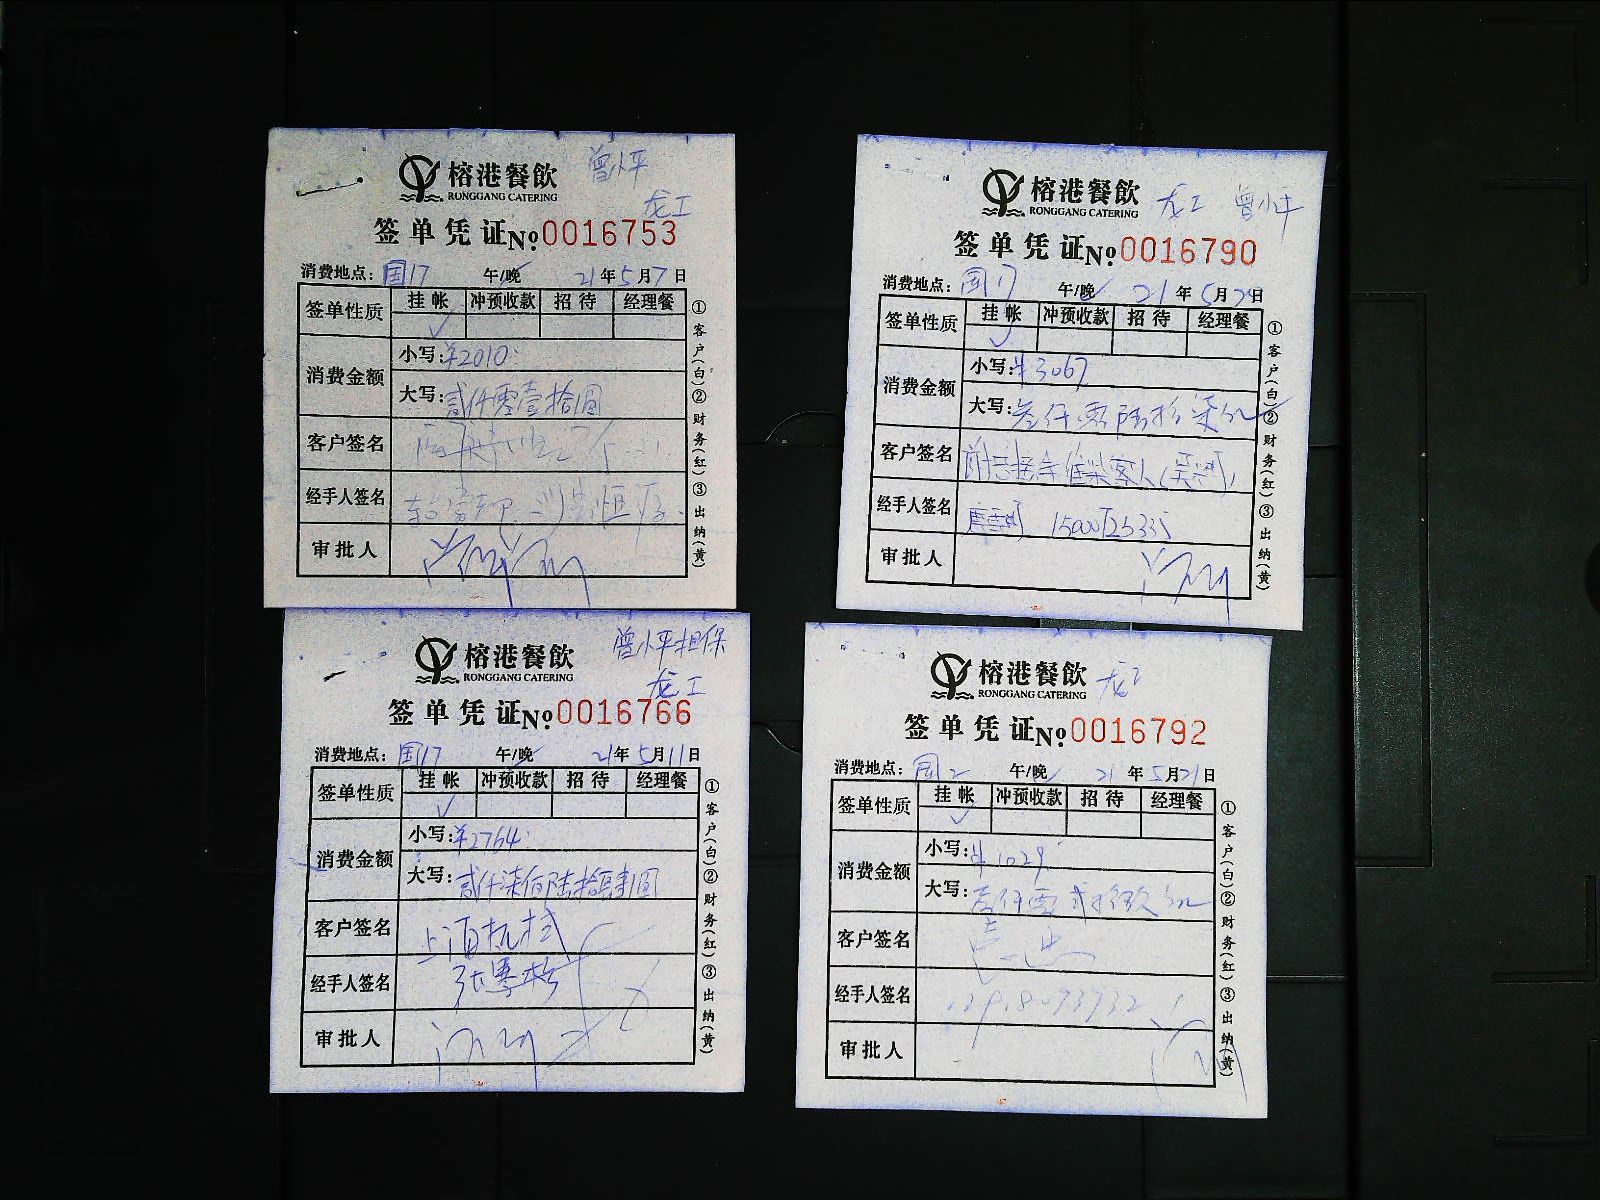 曾小平
榕港餐飲
RONGGANG CATERING
龙工
签单凭证 No. 0016753
消费地点: 国17 午/晚 21年5月7日
签单性质 挂帐 冲预收款 招待 经理餐
✓
消费金额 小写: ¥2010.
大写: 贰仟零壹拾圆
客户签名
经手人签名
审批人
①客户(白)②财务(红)③出纳(黄)
榕港餐飲
RONGGANG CATERING
龙工 曾小平
签单凭证 No. 0016790
消费地点: 国17 午/晚 21年5月20日
签单性质 挂帐 冲预收款 招待 经理餐
✓
消费金额 小写: ¥3067
大写: 叁仟零陆拾柒元
客户签名
经手人签名
审批人
①客户(白)②财务(红)③出纳(黄)
曾小平担保
榕港餐飲
RONGGANG CATERING
龙工
签单凭证 No. 0016766
消费地点: 国17 午/晚 21年5月11日
签单性质 挂帐 冲预收款 招待 经理餐
✓
消费金额 小写: ¥2764.
大写: 贰仟柒佰陆拾肆圆
客户签名
经手人签名
审批人
①客户(白)②财务(红)③出纳(黄)
榕港餐飲
RONGGANG CATERING
龙工
签单凭证 No. 0016792
消费地点: 国2 午/晚 21年5月21日
签单性质 挂帐 冲预收款 招待 经理餐
✓
消费金额 小写: ¥1029
大写: 壹仟零贰拾玖元
客户签名
经手人签名 13918093932
审批人
①客户(白)②财务(红)③出纳(黄)